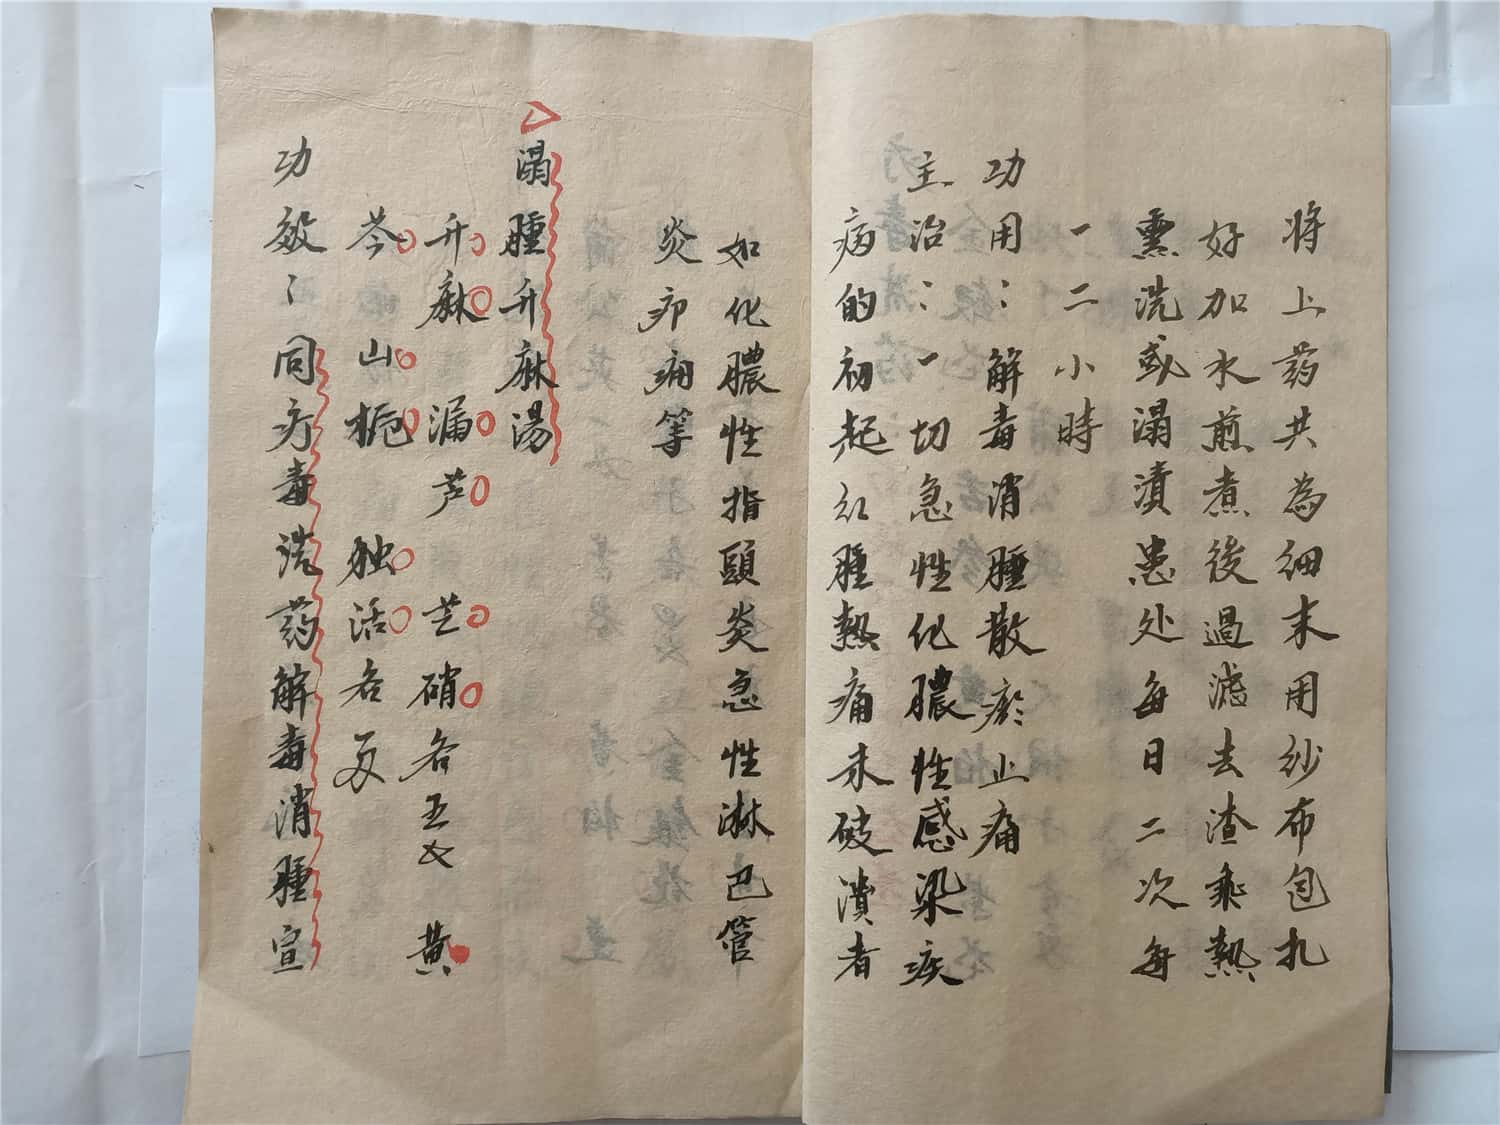 将上药共為细末用纱布包扎
好加水煎煮後過滤去渣乘熱
熏洗或溻渍患处每日二次每
一二小時
功用：解毒消腫散瘀止痛
主治：一切急性化膿性感染疾
病的初起红腫熱痛未破潰者
如化膿性指頭炎急性淋巴管
炎卯痈等
溻腫升麻湯
升麻 漏芦 芒硝各五 黄
芩 山栀 独活各
功效：同疗毒洗药解毒消腫宣